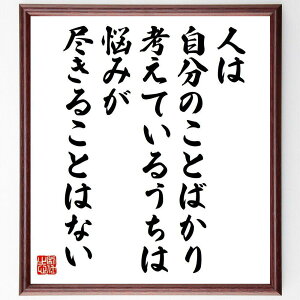 人は
自分のことばかり
考えているうちは
悩みが
尽きることはない